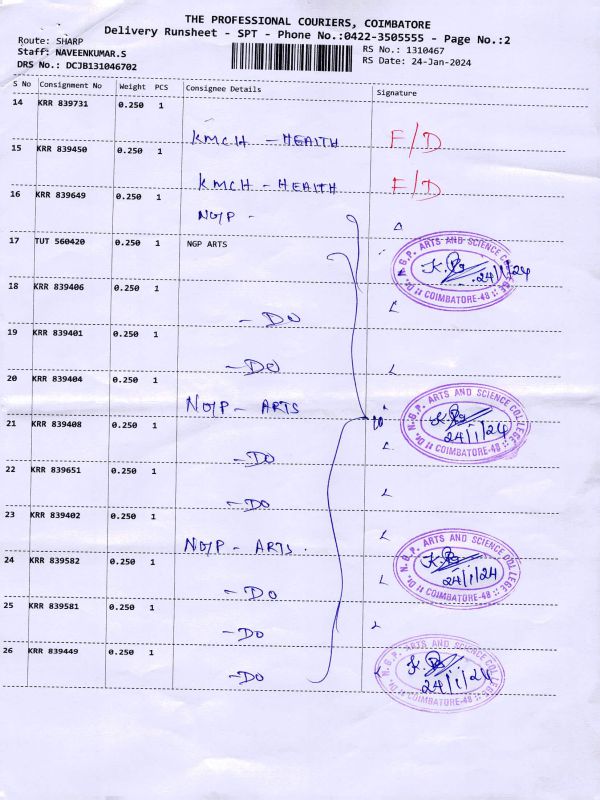 THE PROFESSIONAL COURIERS, COIMBATORE
Delivery Runsheet - SPT - Phone No.:0422-3505555 - Page No.:2
Route: SHARP
Staff: NAVEENKUMAR.S
DRS No.: DCJB131046702
RS No.: 1310467
RS Date: 24-Jan-2024
S No Consignment No Weight PCS Consignee Details Signature
14 KRR 839731 0.250 1
KMCH - HEALTH F/D
15 KRR 839450 0.250 1
KMCH - HEALTH F/D
16 KRR 839649 0.250 1
NG/P -
17 TUT 560420 0.250 1 NGP ARTS
Dr. N.G.P. ARTS AND SCIENCE COLLEGE
COIMBATORE-48
24/1/24
18 KRR 839406 0.250 1
- DO
19 KRR 839401 0.250 1
- DO
20 KRR 839404 0.250 1
NG/P - ARTS
Dr. N.G.P. ARTS AND SCIENCE COLLEGE
COIMBATORE-48
24/1/24
21 KRR 839408 0.250 1
- DO
22 KRR 839651 0.250 1
- DO
23 KRR 839402 0.250 1
NG/P - ARTS.
Dr. N.G.P. ARTS AND SCIENCE COLLEGE
COIMBATORE-48
24/1/24
24 KRR 839582 0.250 1
- DO
25 KRR 839581 0.250 1
- DO
26 KRR 839449 0.250 1
- DO
Dr. N.G.P. ARTS AND SCIENCE COLLEGE
COIMBATORE-48
24/1/24